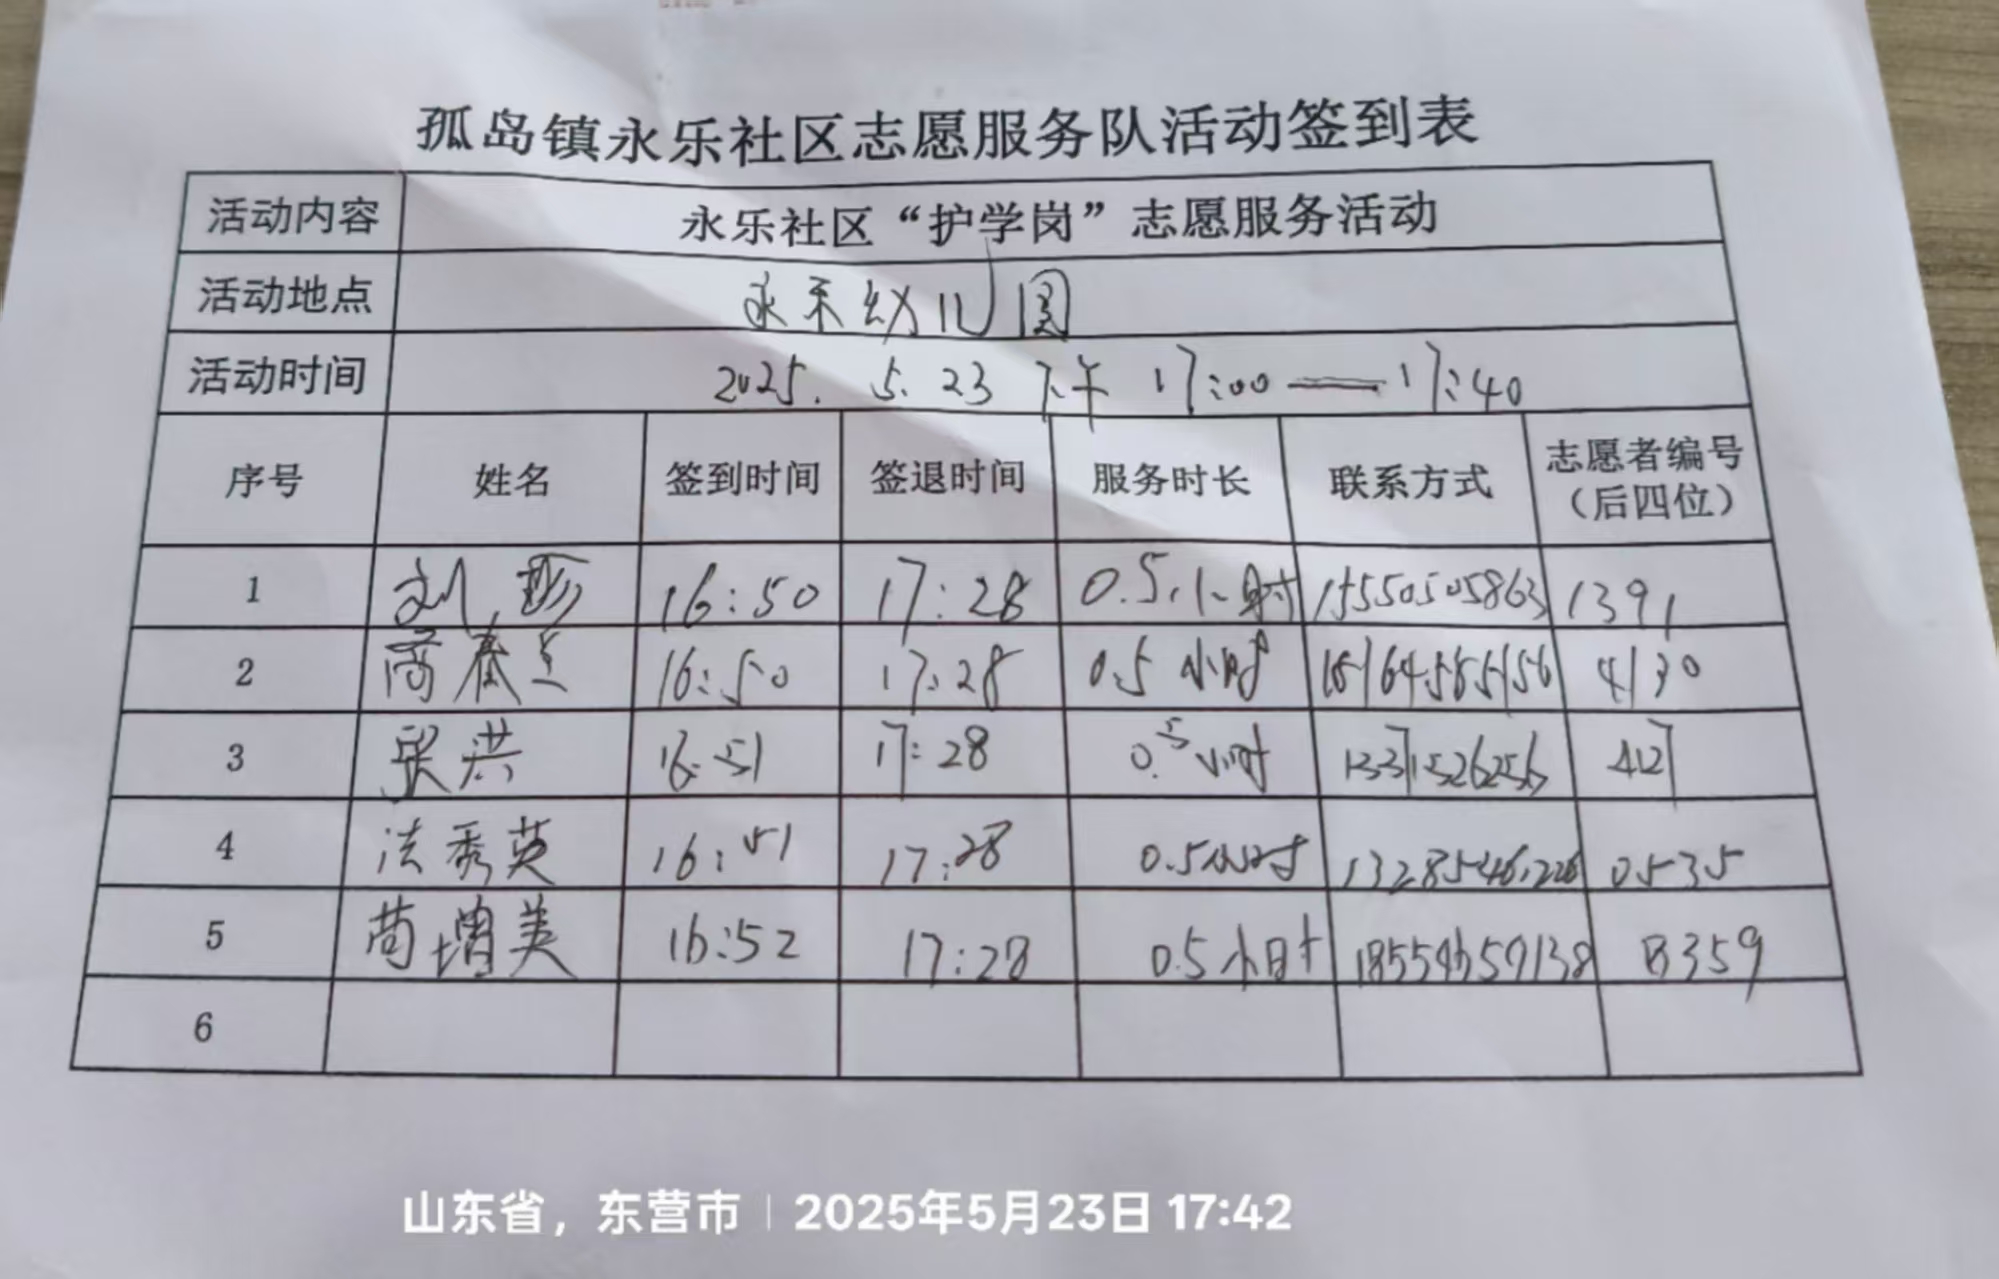 孤岛镇永乐社区志愿服务队活动签到表
活动内容 永乐社区“护学岗”志愿服务活动
活动地点 永乐幼儿园
活动时间 2025. 5. 23 下午 17:00——17:40
序号 姓名 签到时间 签退时间 服务时长 联系方式 志愿者编号（后四位）
1 刘珍 16:50 17:28 0.5小时 15550505863 1391
2 16:50 17:28 0.5小时 4130
3 张洪 16:51 17:28 0.5小时 13371526256 4127
4 法秀英 16:51 17:28 0.5小时 0535
5 苟增美 16:52 17:28 0.5小时 8359
6
山东省，东营市 | 2025年5月23日 17:42